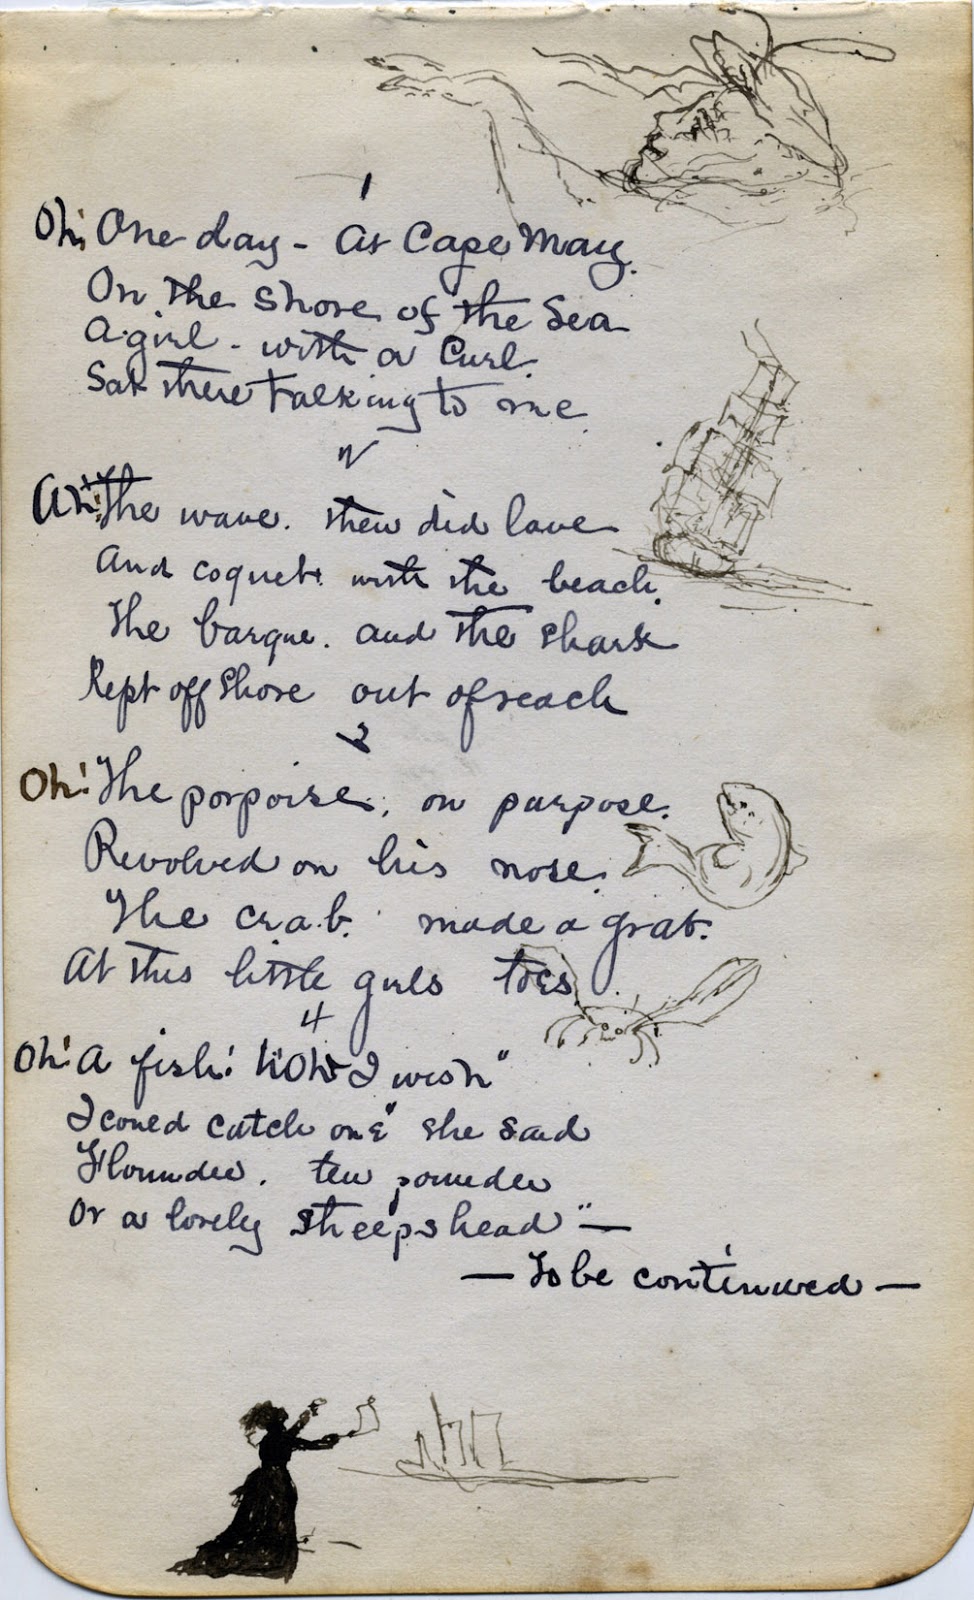 1
Oh! One day - At Cape May.
On the shore of the Sea
A girl - with a Curl.
Sat there talking to me
2
Ah! The wave. then did lave
And coquet. with the beach.
The barque. and the shark
Kept off shore out of reach
3
Oh! The porpoise, on purpose.
Revolved on his nose.
The crab. made a grab.
At this little girls toes
4
Oh! A fish! "Oh I wish"
I coued catch one" she said
Flounder. ten pounder
Or a lovely Sheepshead" —
— To be continued —